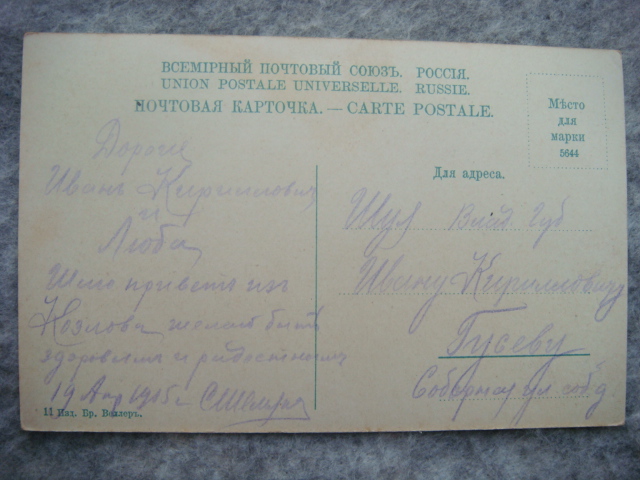 ВСЕМІРНЫЙ ПОЧТОВЫЙ СОЮЗЪ. РОССІЯ.
UNION POSTALE UNIVERSELLE. RUSSIE.
ПОЧТОВАЯ КАРТОЧКА. — CARTE POSTALE.
Мѣсто
для
марки
5644
Дорогие
Иванъ Кириллович
и
Люба
Шлю приветъ изъ
Козлова желаю быть
здоровыми и радостными
19 Апр 1915 г
14 Изд. Бр. Веллеръ.
Для адреса.
Шуя Влад Губ
Ивану Кирилловичу
Гусеву
Соборная ул соб д